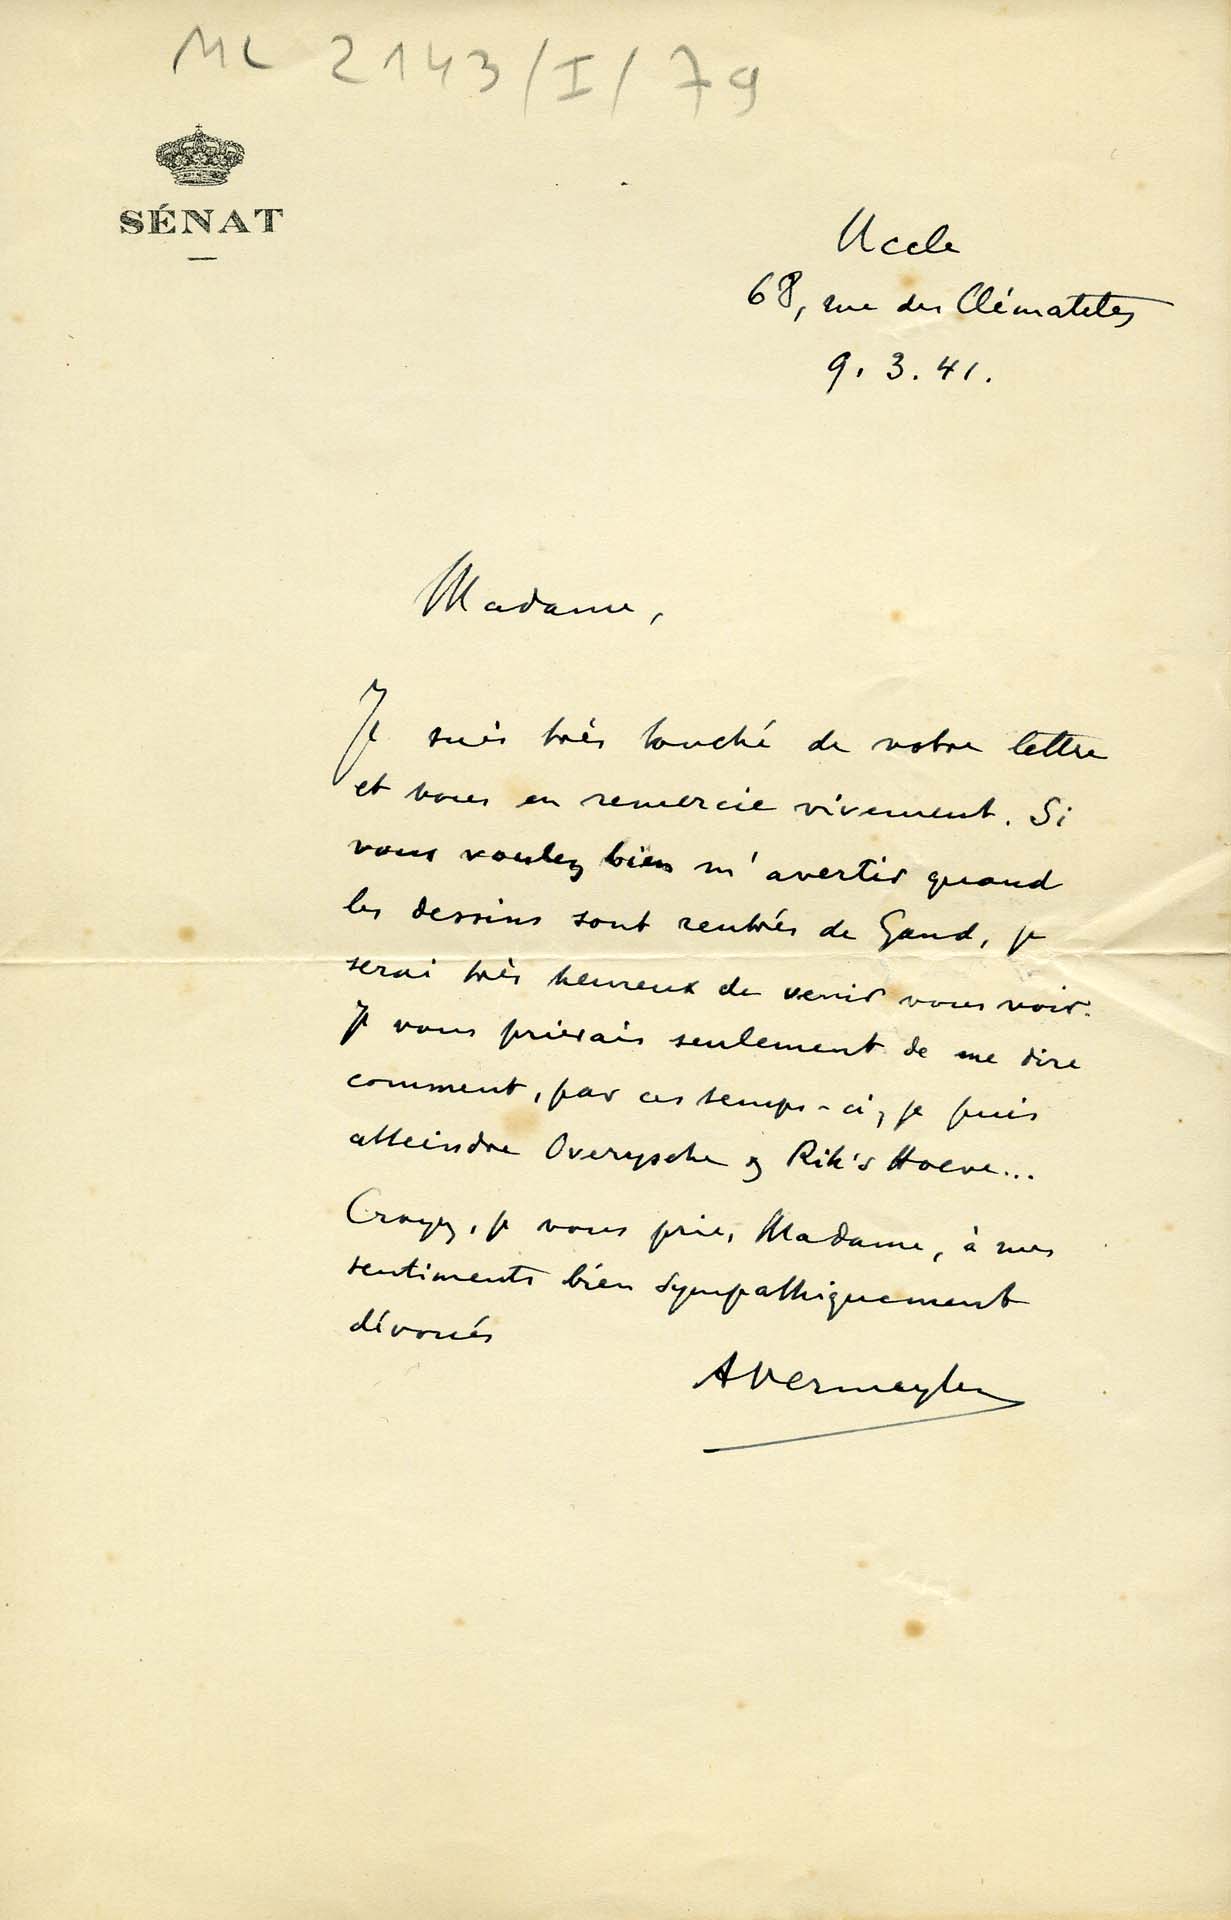 ML 2143/I/79
SÉNAT
Uccle
68, rue des Clématites
9.3.41.
Madame,
Je suis très touché de votre lettre
et vous en remercie vivement. Si
vous voulez bien m'avertir quand
les dessins sont rentrés de Gand, je
serai très heureux de venir vous voir.
Je vous prierais seulement de me dire
comment, par ces temps-ci, je puis
atteindre Overyssche & Rik's Hoeve...
Croyez, je vous prie, Madame, à mes
sentiments bien sympathiquement
dévoués
AVermeylen